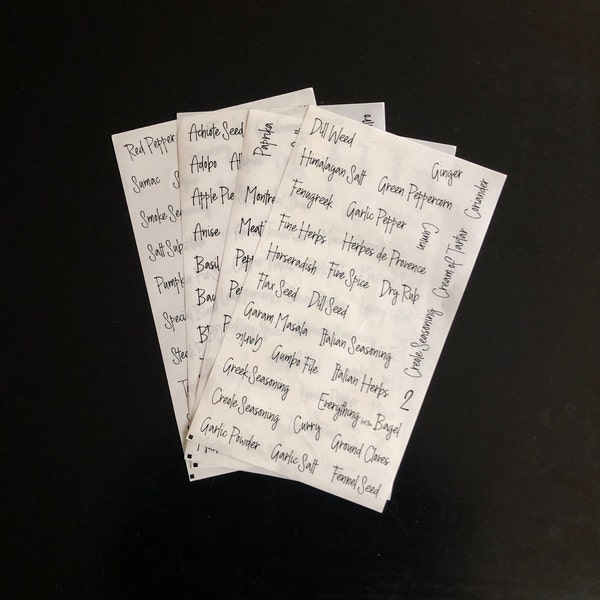 Red Pepper
Sumac
Smoke Se
Salt Sub
Pumpk
Spec
Ste
Achiote Seed
Adobo
Apple Pie
Anise
Basil
Ba
B
Paprika
Montre
Meat
Pep
Pe
P
Dill Weed
Ginger
Himalayan Salt
Green Peppercorn
Coriander
Fenugreek
Garlic Pepper
Cumin
Fine Herbs
Herbes de Provence
Cream of Tartar
Horseradish
Five Spice
Dry Rub
Flax Seed
Dill Seed
Creole Seasoning
Garam Masala
Italian Seasoning
Garlic
Gumbo File
Italian Herbs
2
Greek Seasoning
Everything but the Bagel
Creole Seasoning
Curry
Ground Cloves
Garlic Powder
Garlic Salt
Fennel Seed